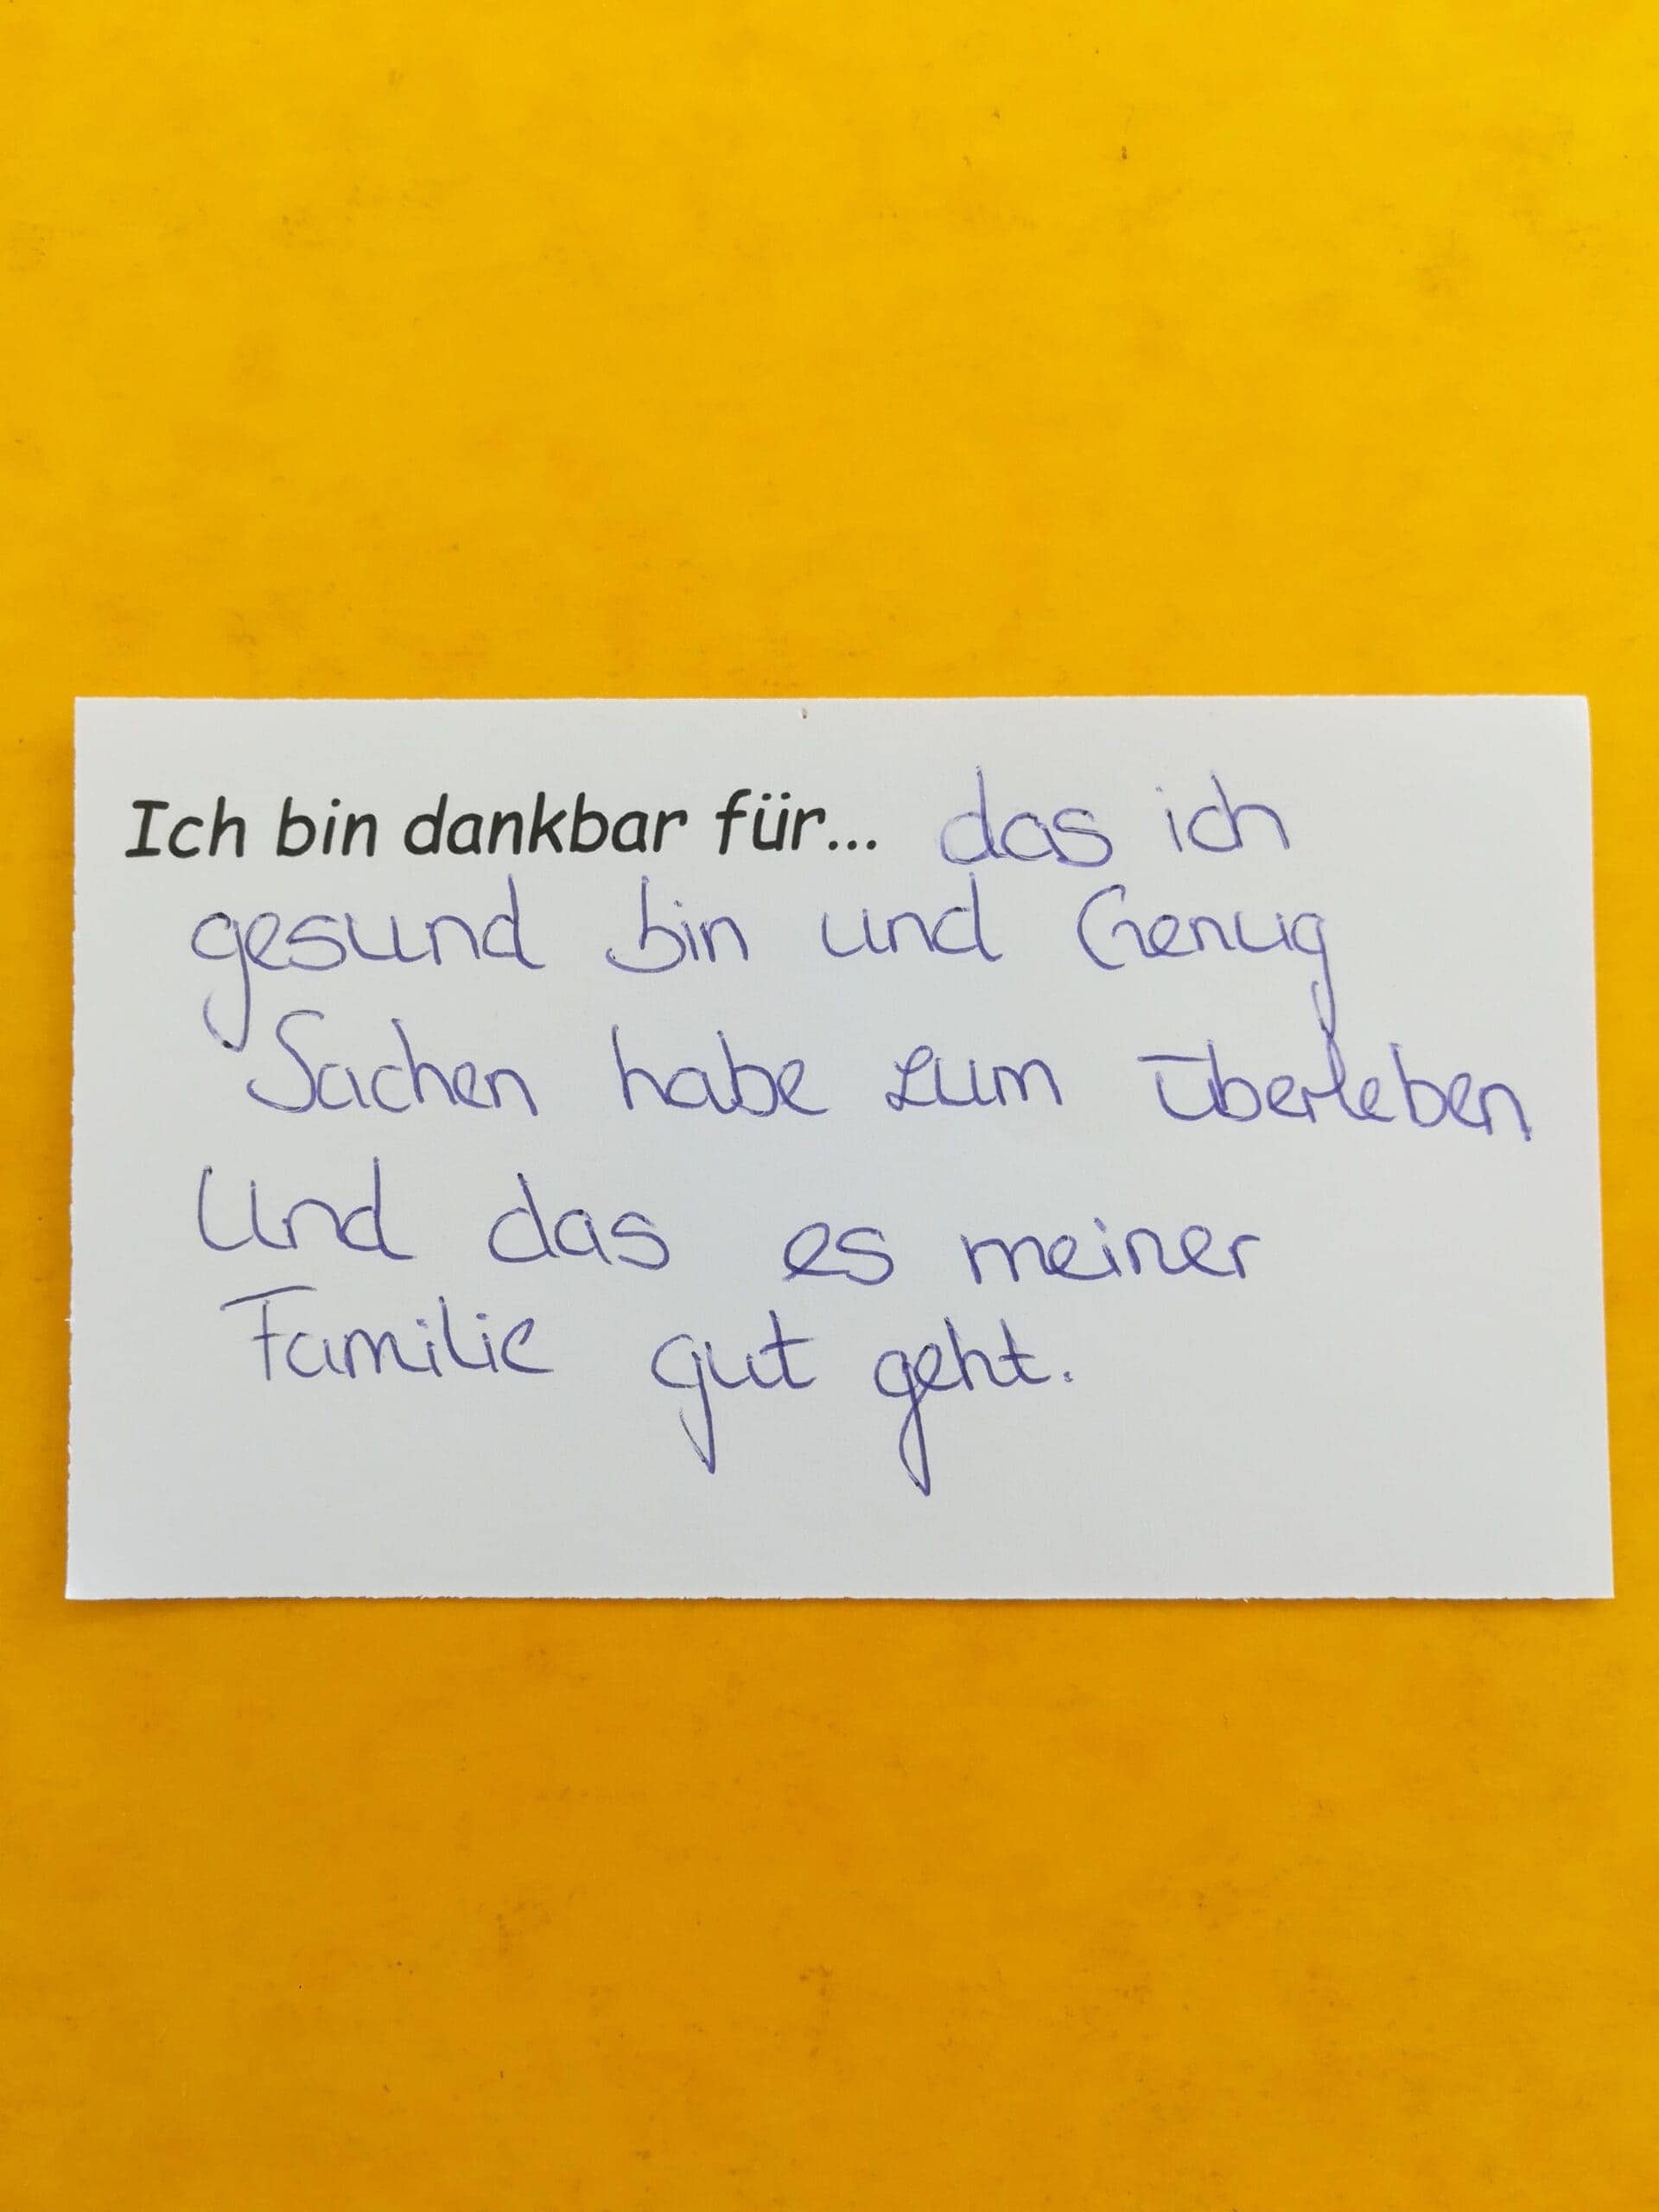 Ich bin dankbar für... das ich
gesund bin und Genug
Sachen habe zum überleben
Und das es meiner
Familie gut geht.